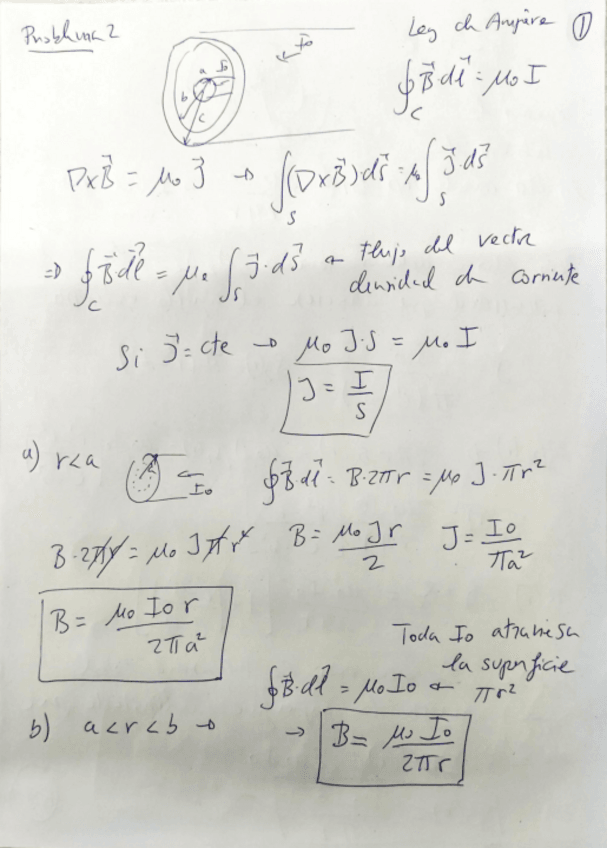 Problema 2
Ley de Ampère ①
a b c I₀
∮_C B⃗·dl⃗ = μ₀ I
∇×B⃗ = μ₀ J⃗ → ∫_S (∇×B⃗)·ds⃗ = μ₀ ∫_S J⃗·ds⃗
⇒ ∮_C B⃗·dl⃗ = μ₀ ∫_S J⃗·ds⃗ ← Flujo del vector
densidad de corriente
Si J⃗ = cte → μ₀ J·S = μ₀ I
J = I/S
a) r<a I₀ ∮B⃗·dl⃗ = B·2πr = μ₀ J·πr²
B·2πr = μ₀ J π r² B = μ₀ J r / 2 J = I₀ / πa²
B = μ₀ I₀ r / 2πa²
Toda I₀ atraviesa
la superficie
∮B⃗·dl⃗ = μ₀ I₀ ← πr²
b) a<r<b → → B = μ₀ I₀ / 2πr